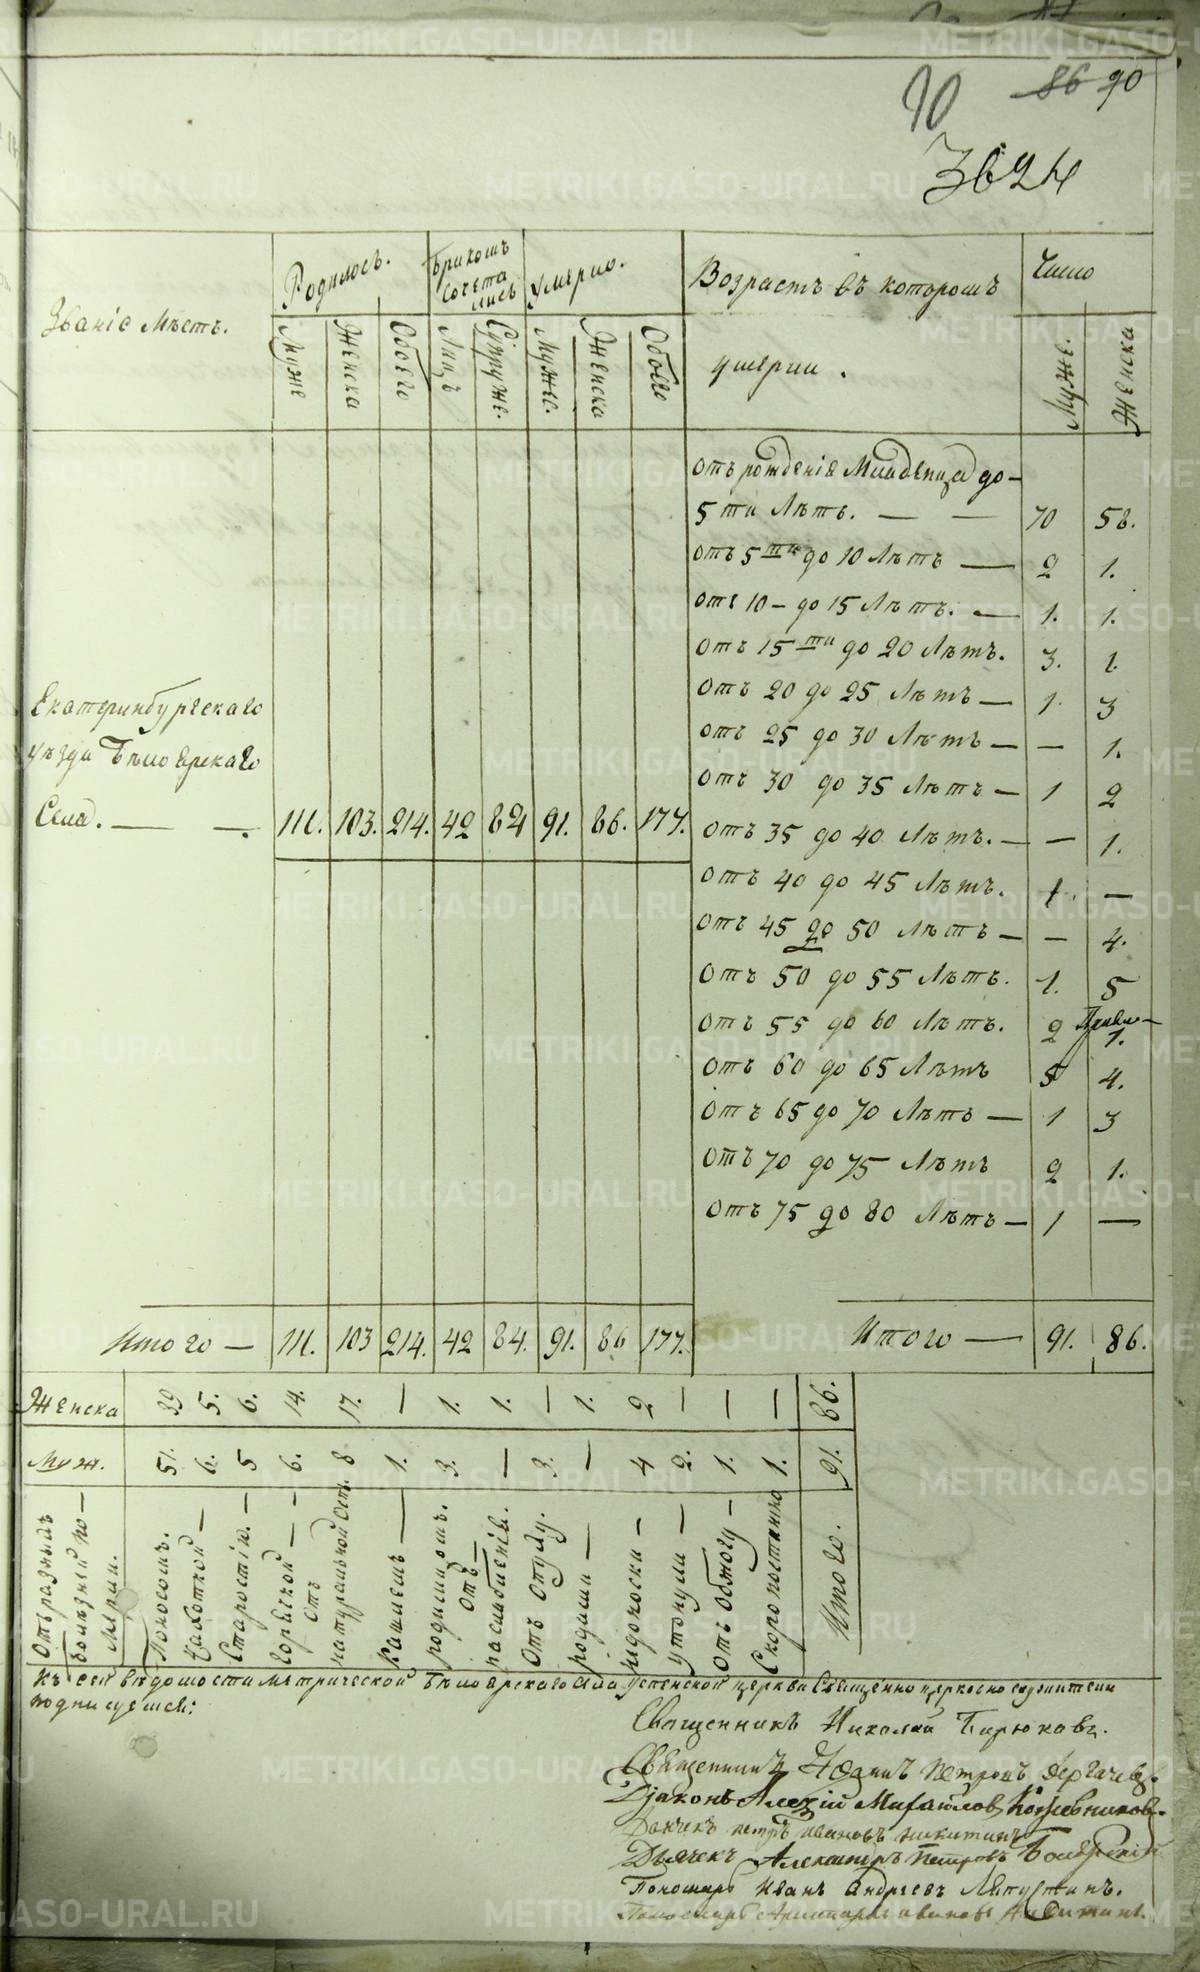 90 86 90
3624
Званіе Мѣстъ.
Родилось.
Бракомъ сочета лись
Умерло.
Возрастъ въ которомъ
Число
Муже
Женска
Обоего
Лицъ
Супруже.
Мужес.
Женска
Обоего
умерли.
Муже.
Женска
отъ рожденія Младенца до-
5 ти Лѣтъ. — — 70 58.
отъ 5 ти до 10 Лѣтъ — 2 1.
отъ 10 - до 15 Лѣтъ. — 1. 1.
отъ 15 ти до 20 Лѣтъ. 3. 1.
отъ 20 до 25 Лѣтъ — 1. 3
отъ 25 до 30 Лѣтъ — — 1.
отъ 30 до 35 Лѣтъ — 1 2
отъ 35 до 40 Лѣтъ. — — 1.
отъ 40 до 45 Лѣтъ. 1. —
отъ 45 до 50 Лѣтъ — — 4.
отъ 50 до 55 Лѣтъ. 1. 5
отъ 55 до 60 Лѣтъ. 2 1.
отъ 60 до 65 Лѣтъ 5 4.
отъ 65 до 70 Лѣтъ — 1 3
отъ 70 до 75 Лѣтъ 2 1.
отъ 75 до 80 Лѣтъ — 1 —
Екатеринбургскаго
уѣзда Бѣлоярскаго
Села. — — 111. 103. 214. 42 84 91. 86. 177.
Итого — 111. 103 214. 42 84. 91. 86 177. Итого — 91. 86.
Женска 39 5. 6. 14. 17. — 1. 1. — 1. 2 — — — 86.
Муж. 51. 6. 5 6. 8 1. 3. — 3. — 4 2. 1. 1. 91.
Отъ разныхъ
болѣзней по-
мерли.
Поносомъ.
Чахоткой —
Старостію. —
Горячкой —
Отъ
натуральной оспы
Кашлемъ —
родимцомъ.
Отъ —
разслабленія.
Отъ Опуху.
родили —
утонули —
Отъ Обжогу —
Скоропостижно
Итого.
Къ сей вѣдомости метрической Бѣлоярскаго села Успенской церкви Священно церковно служители
подписуемся:
Священникъ Николай Бирюковъ.
Священникъ Іоаннъ Петровъ Дергачевъ.
Дьяконъ Алексій Михайловъ Кожевниковъ.
Дьячкъ петръ ивановъ никитинъ
Дьячекъ Александръ Петровъ Боярскій
Пономарь Иванъ Андреевъ Лепустинъ.
METRIKI.GASO-URAL.RU